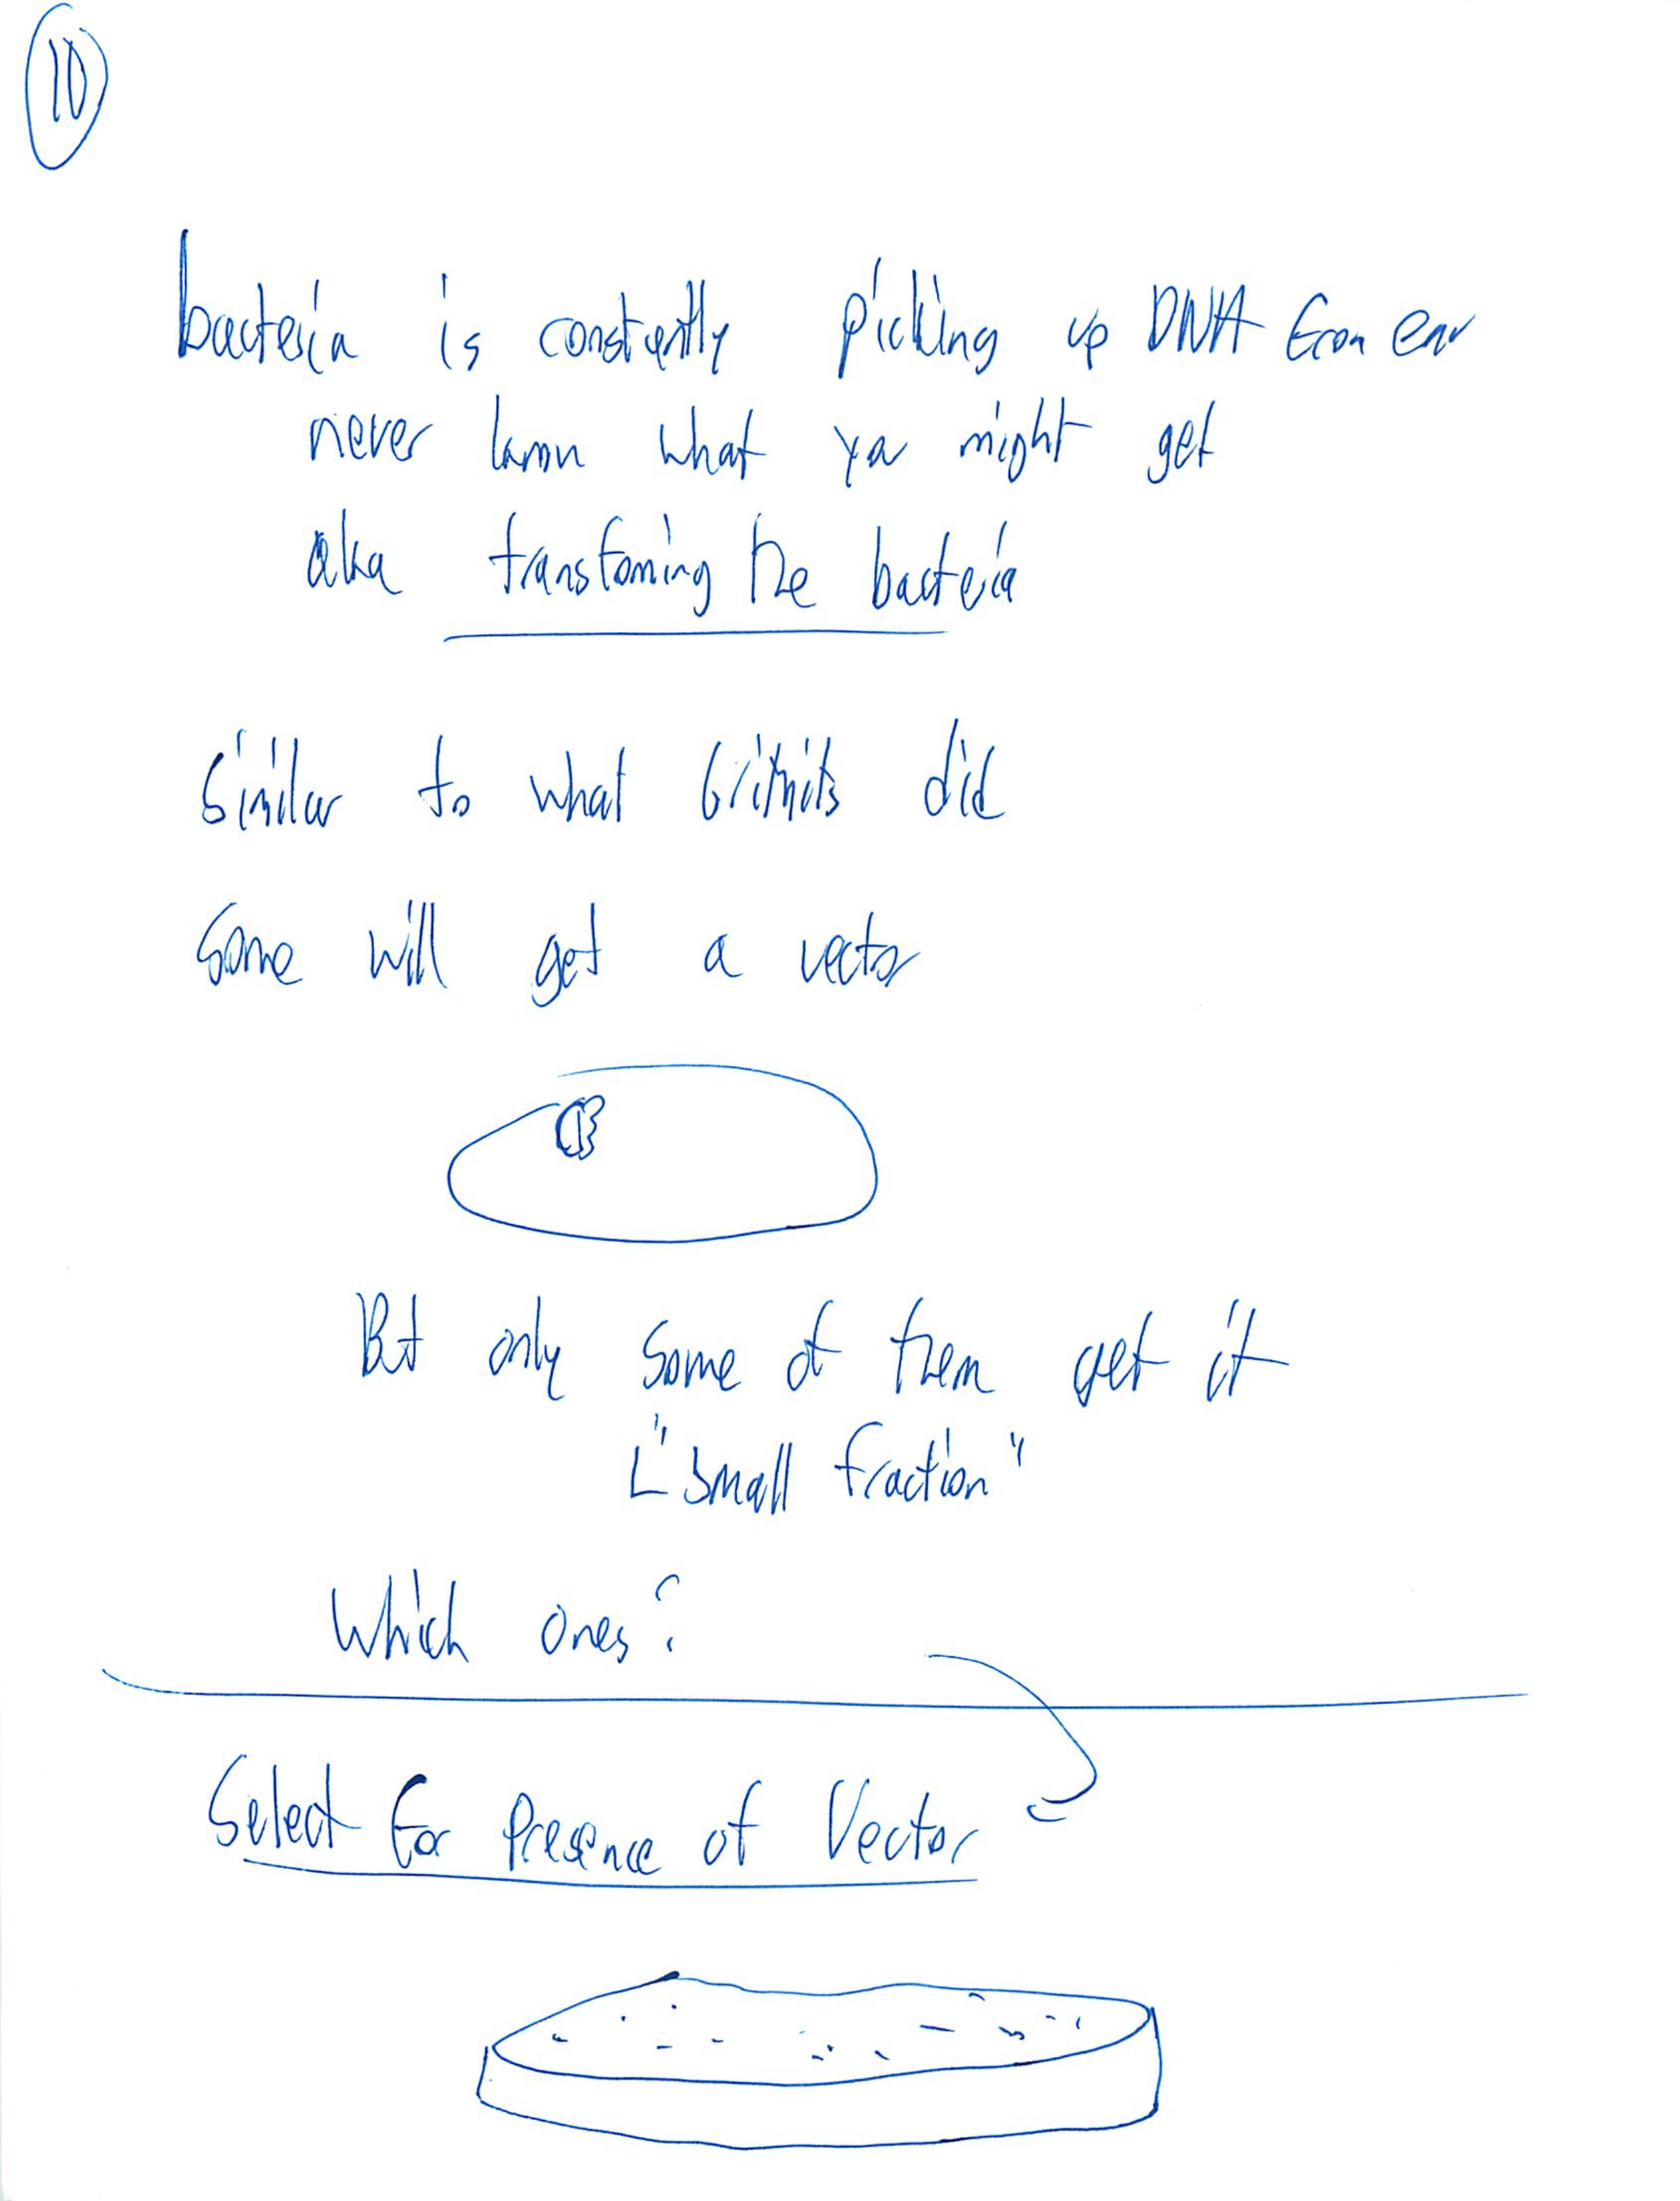 10
bacteria is constantly picking up DNA from env
never known what you might get
aka transforming the bacteria
Similar to what Griffiths did
Some will get a vector
But only some of them get it
"small fraction"
Which ones?
Select for Presence of Vector